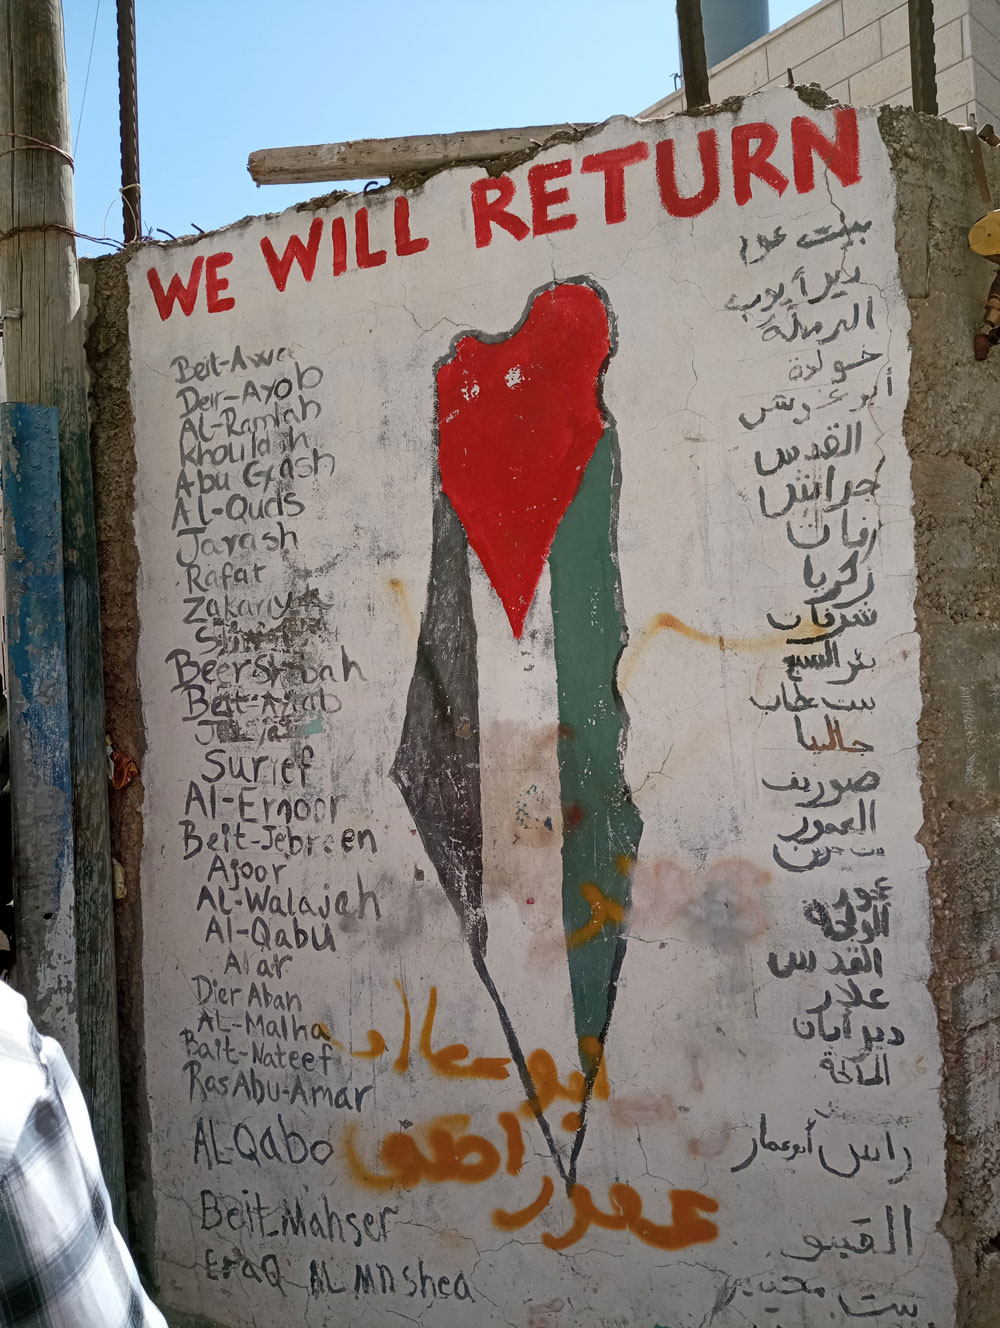 WE WILL RETURN
Beit-Awa
Deir-Ayob
Al-Ramlah
Khouldah
Abu Gosh
Al-Quds
Jarash
Rafat
Zakariya
BeerShebah
Beit-Atab
Surief
Al-Emoor
Beit-Jebreen
Ajoor
Al-Walajah
Al-Qabu
Alar
Dier Aban
AL-Malha
Bait-Nateef
RasAbu-Amar
AL-Qabo
Beit-Mahser
EraQ AL Mnshea
بيت عوا
دير أيوب
الرملة
خولدة
أبو غوش
القدس
جراش
رفات
زكريا
شرفات
بئر السبع
بيت عطاب
جاليا
صوريف
العمور
بيت جبرين
عجور
الولجة
القدس
علار
دير أبان
المالحة
راس أبو عمار
القبو
بيت محيير
ابو